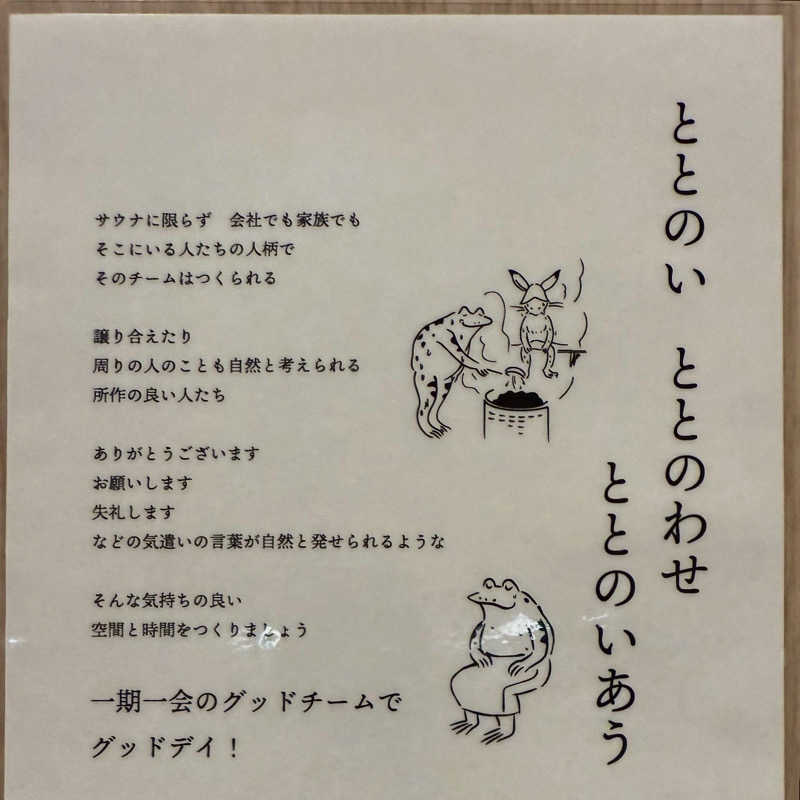 ととのい　ととのわせ
ととのいあう
サウナに限らず　会社でも家族でも
そこにいる人たちの人柄で
そのチームはつくられる
譲り合えたり
周りの人のことも自然と考えられる
所作の良い人たち
ありがとうございます
お願いします
失礼します
などの気遣いの言葉が自然と発せられるような
そんな気持ちの良い
空間と時間をつくりましょう
一期一会のグッドチームで
グッドデイ！